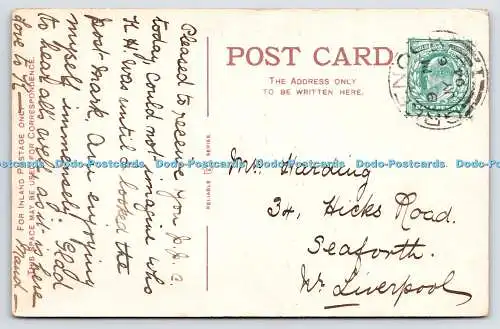 POST CARD.
THE ADDRESS ONLY
TO BE WRITTEN HERE.
FOR INLAND POSTAGE ONLY
THIS SPACE MAY BE USED FOR CORRESPONDENCE.
Pleased to receive your P.P.C.
today, could not imagine who
K.H. was until I looked the
post mark, am enjoying
myself immensely. Glad
to hear all's well as it is here
love to
Maud
Mrs Harding
34, Hicks Road.
Seaforth.
Nr Liverpool
RELIABLE
Dodo-Postcards Dodo-Postcards Dodo-Postcards Dodo-Postcards Dodo-Postcards Dodo-Postcards